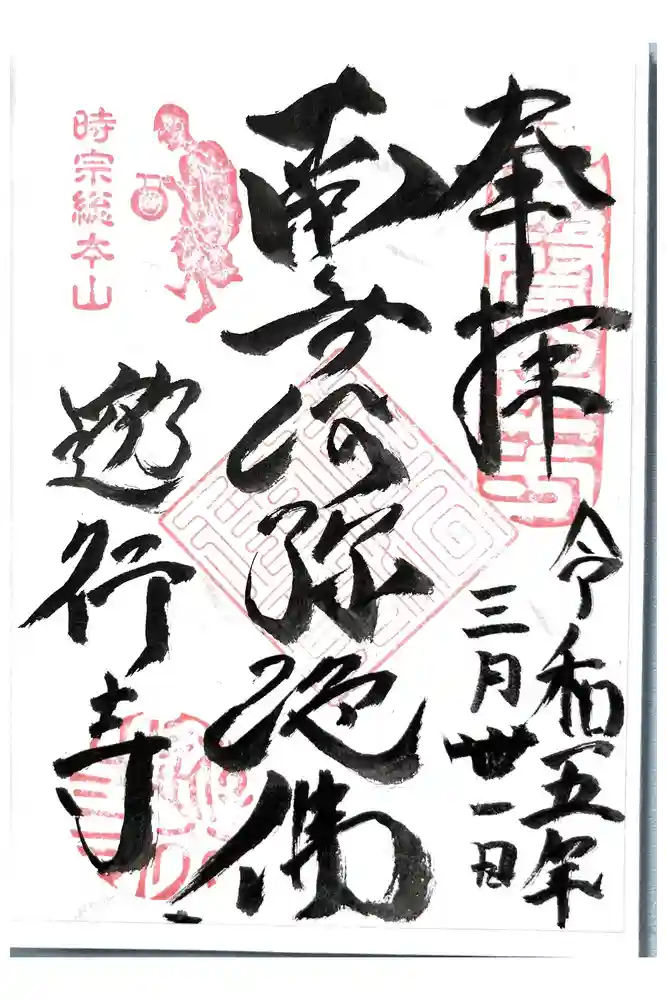 奉拝
令和五年
三月卅一日
南無阿弥陀佛
時宗総本山
遊行寺